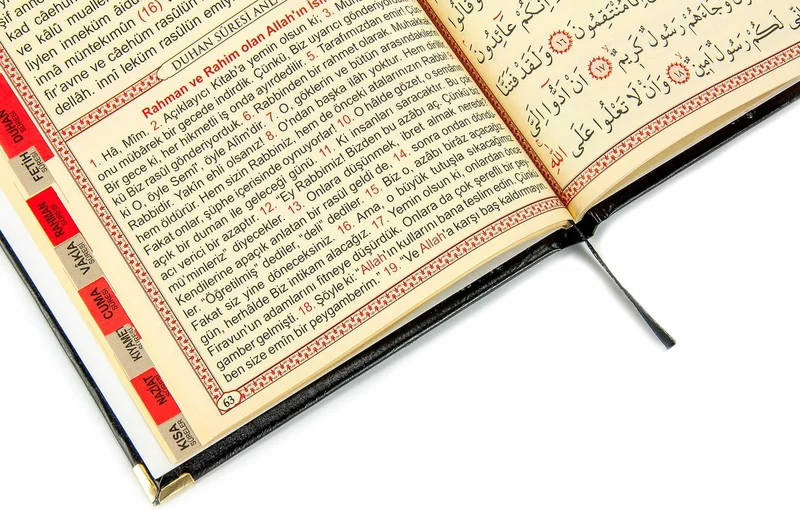 (16)
innâ müntekımûn
fir'avne ve câehüm rasûlün
dellâh. İnnî leküm rasûlün emîy
DUHAN SURESİ
Rahman ve Rahim olan Allah'ın
1. Hâ, Mîm. 2. Açıklayıcı Kitab'a yemin olsun ki; 3.
onu mübârek bir gecede indirdik. Çünkü, Biz uyarıcı
Bir gece ki, her hikmetli iş onda ayırdedilir. 5. Tarafımızdan emir!
kü Biz rasül gönderiyorduk. 6. Rabbinden bir rahmet olarak.
i O, öyle Semî', öyle Alîm'dir. 7. O, göklerin ve bütün arasındakilerin
Rabbidir. Yakîn ehli olsanız! 8. O'ndan başka ilâh yoktur. Hem diriltir
hem öldürür. Hem sizin Rabbiniz, hem de önceki atalarınızın Rabbi!
Fakat onlar şüphe içerisinde oynuyorlar! 10. O hâlde gözet, o semânın
açık bir duman ile geleceği günü. 11. Ki insanları saracaktır.
acı verici bir azaptır. 12. "Ey Rabbimiz! Bizden bu azâbı aç, Çünkü
mü'minleriz" diyecekler. 13. Onlara düşünmek, ibret almak nerede?
Kendilerine apaçık anlatan bir rasül geldi de, 14. sonra ondan
ler. "Öğretilmiş" dediler, "deli" dediler. 15. Biz o azâbı biraz açacağız,
Fakat siz yine döneceksiniz. 16. Ama o büyük tutuşla sıkacağımız
gün, herhâlde Biz intikam alacağız. 17. Yemin olsun ki, onlardan önce
Firavun'un adamlarını fitneye düşürdük. Onlara da çok şerefli bir pey-
gamber gelmişti. 18. Şöyle ki: "Allah'ın kullarını bana teslim edin. Çünkü
ben size emîn bir peygamberim." 19. "Ve Allah'a karşı baş kaldırmayın.
63
DUHAN SÛRESİ
FETİH SÛRESİ
RAHMAN SÛRESİ
VÂKIA SÛRESİ
CUMA SÛRESİ
KIYAME SÛRESİ
NAZİAT SÛRESİ
KISA SÛRELER
عَائِدُونَ
مُنْتَقِمُونَ ﴿١٦﴾ وَلَقَدْ فَتَنَّا
وَجَاءَهُمْ رَسُولٌ كَرِيمٌ ﴿١٧﴾ أَنْ أَدُّوا إِلَيَّ
لَكُمْ رَسُولٌ أَمِينٌ ﴿١٨﴾ وَأَنْ لَا تَعْلُوا عَلَى
اللّٰهِ